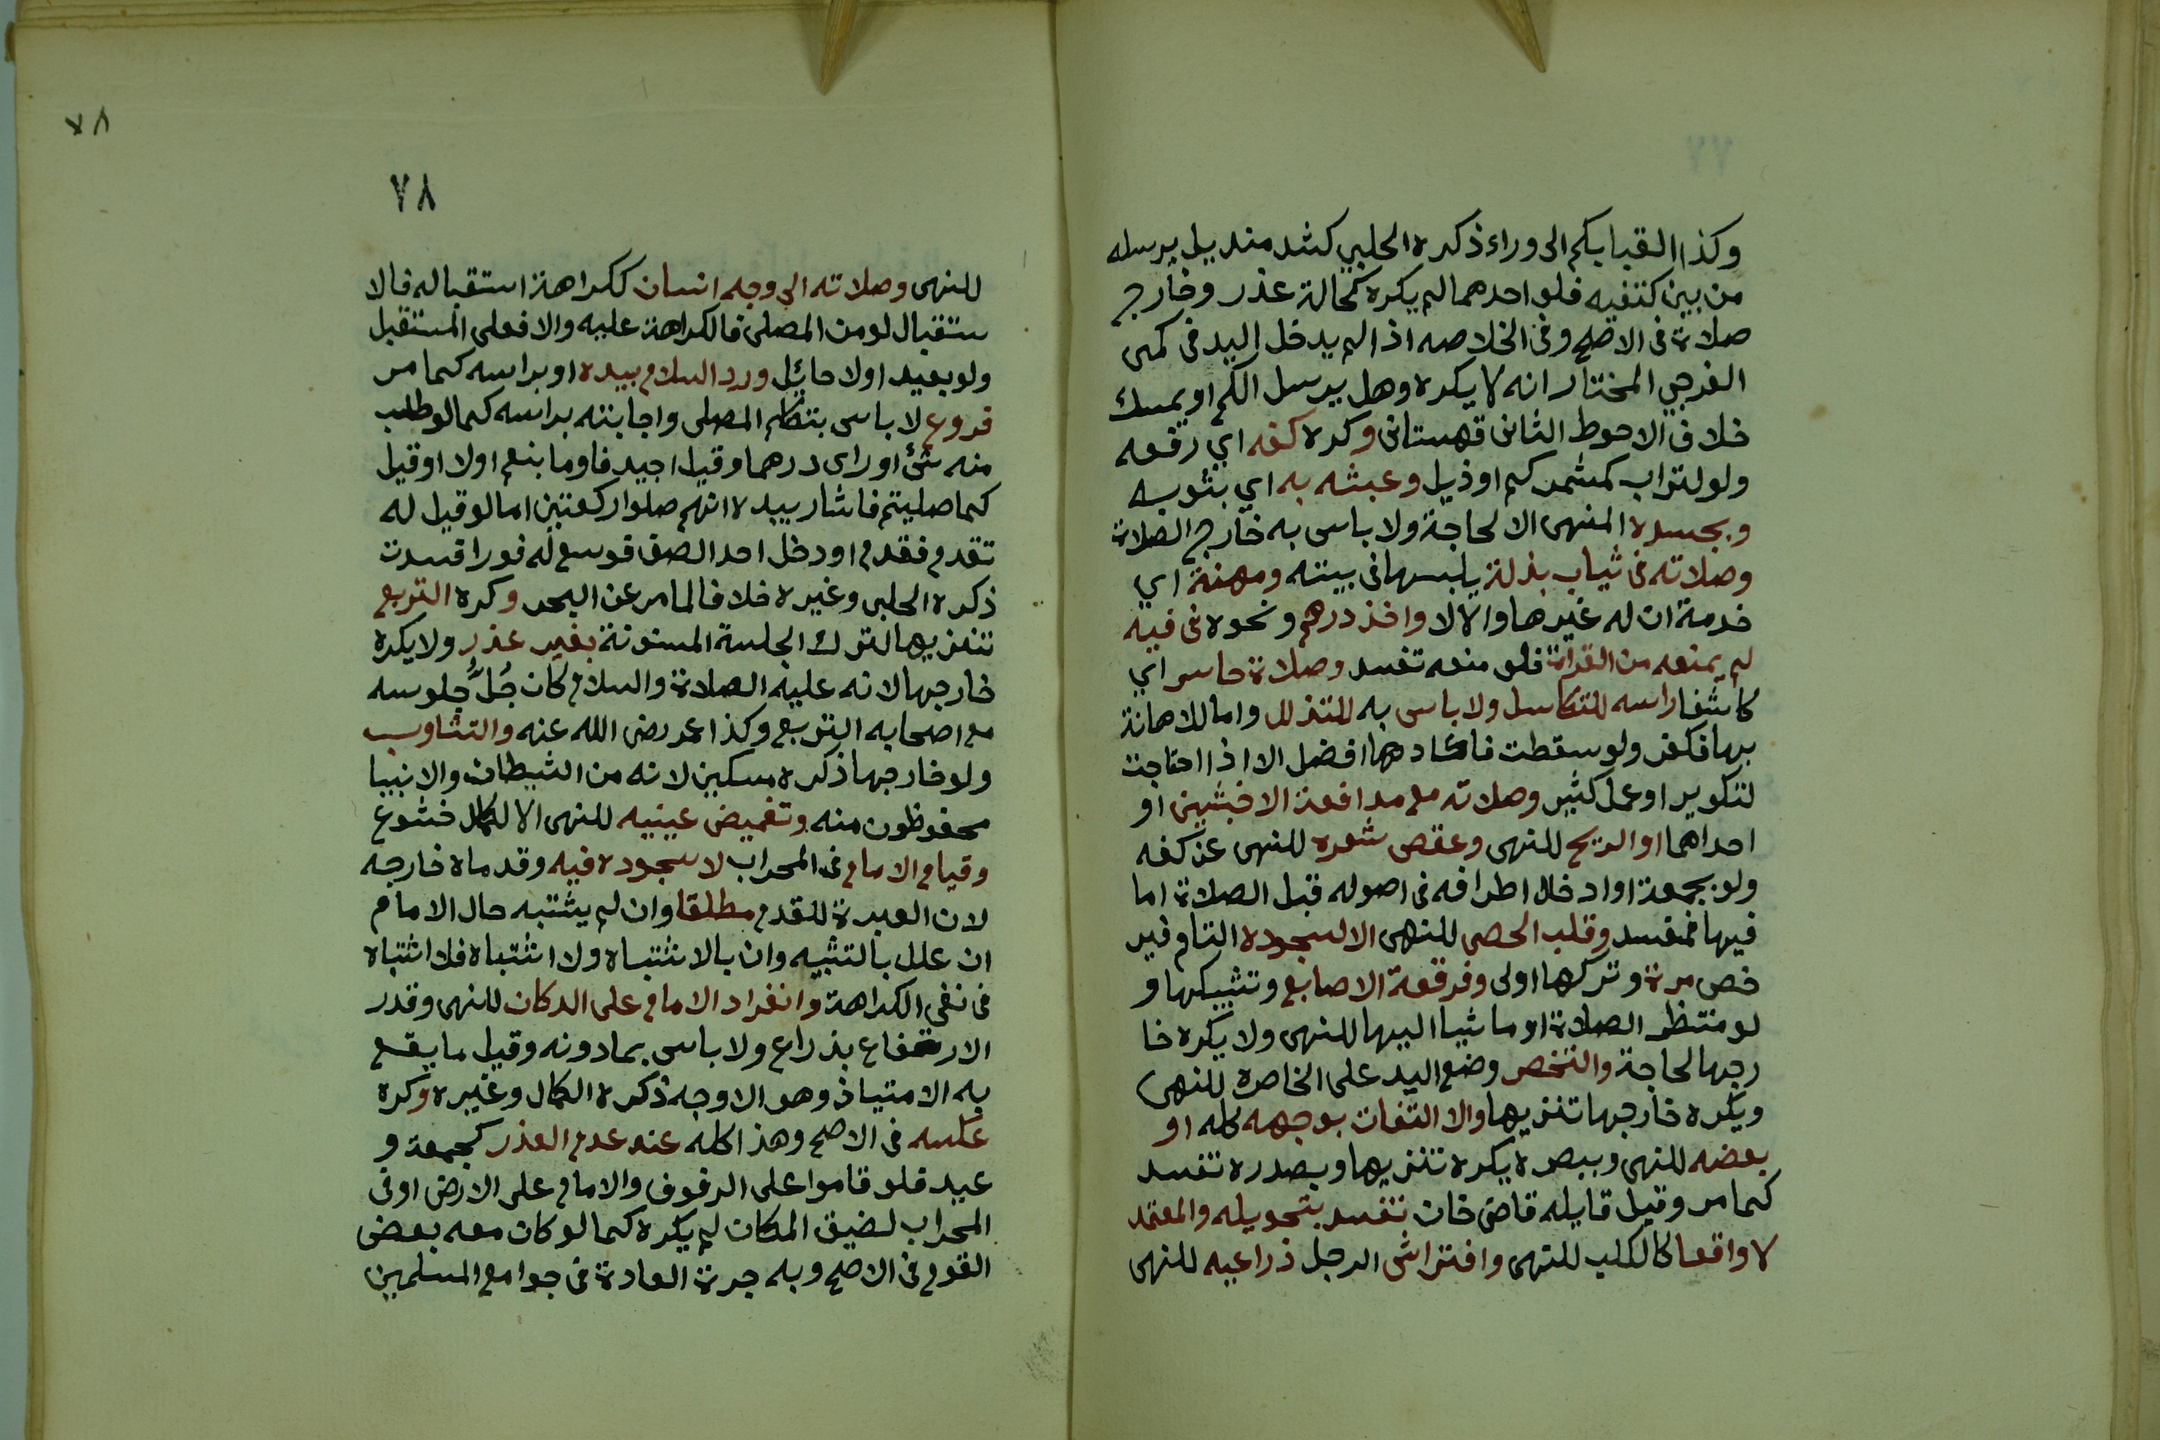 وكذا القبا بكم الى وراء ذكره الحلبي كشد منديل يرسله
من بين كتفيه فلو احدهما لم يكره كحالة عذر وخارج
صلاة فى الاصح وفى الخلاصه اذا لم يدخل اليد فى كمى
الفرجي المختار انه لا يكره وهل يرسل الكم او يمسك
خلاف الاحوط الثانى قهستانى وكره كفه اي رفعه
ولو لتراب كمشمر كم او ذيل وعبثه به اي بثوبه
وبجسده للنهى الا لحاجة ولا باس به خارج الصلاة
وصلاته فى ثياب بذلة يلبسها فى بيته ومهنة اي
خدمة ان له غيرها والا لا واخذ درهم ونحوه فى فيه
لم يمنعه من القراة فلو منعه تفسد وصلاة حاسر اي
كاشفا راسه للتكاسل ولا باس به للتذلل واما للاهانة
بها فكفر ولو سقطت فاعادهها افضل الا اذا احتاجت
لتكوير او عمل كثير وصلاته مع مدافعة الاخبثين او
احداهما او الريح للنهى وعقص شعره للنهى عن كفه
ولو بجمعة او ادخال اطرافه فى اصوله قبل الصلاة اما
فيها فمفسد وقلب الحصى للنهى الا لسجوده التام فير
خص مرة وتركها اولى وفرقعة الاصابع وتشبيكها و
لو منتظر الصلاة او ماشيا اليها للنهى ولا يكره خا
رجها لحاجة والتخصر وضع اليد على الخاصرة للنهى
ويكره خارجها تنزيها والا التفات بوجهه كله او
بعضه للنهى وببصره يكره تنزيها وبصدره تفسد
كما مر وقيل قايله قاضى خان تفسد بتحويله والمعتمد
لا واقعا كالكلب للنهى وافتراش الرجل ذراعيه للنهى
٧٨
٧٨
للنهى وصلاته الى وجه انسان ككراهة استقباله فالا
ستقبال لو من المصلى فالكراهة عليه والا فعلى المستقبل
ولو بعيد اولا حائل ورد السلام بيده او براسه كما مر
فروع لا باس بتكلم المصلى واجابته براسه كما لو طلب
منه شئ او راى درهما وقيل اجيد فاوما بنعم اولا او قيل
كما صليتم فاشار بيده انهم صلوا ركعتين اما لو قيل له
تقدم فقدم او دخل احد الصف فوسع له فورا فسدت
ذكره الحلبى وغيره خلافا لما مر عن البحر وكره التربع
تنزيها لترك الجلسة المسنونة بغير عذر ولا يكره
خارجها لانه عليه الصلاة والسلام كان جُلُّ جلوسه
مع اصحابه التربع وكذا عمر رضى الله عنه والتثاوب
ولو خارجها ذكره مسكين لانه من الشيطان والانبيا
محفوظون منه وتغميض عينيه للنهى الا لكمال خشوع
وقيام الامام فى المحراب لا سجوده فيه وقدماه خارجه
لان العبرة للقدم مطلقا وان لم يشتبه حال الامام
ان علل بالتشبيه وان بالاشتباه ولا اشتباه فلا اشتباه
فى نفى الكراهة وانفراد الامام على الدكان للنهى وقدر
الارتفاع بذراع ولا باس بمادونه وقيل ما يقع
به الامتياز وهو الاوجه ذكره الكمال وغيره وكره
عكسه فى الاصح وهذا كله عند عدم العذر كجمعة و
عيد فلو قاموا على الرفوف والامام على الارض او فى
المحراب لضيق المكان لم يكره كما لو كان معه بعض
القوم فى الاصح وبه جرة العادة فى جوامع المسلمين